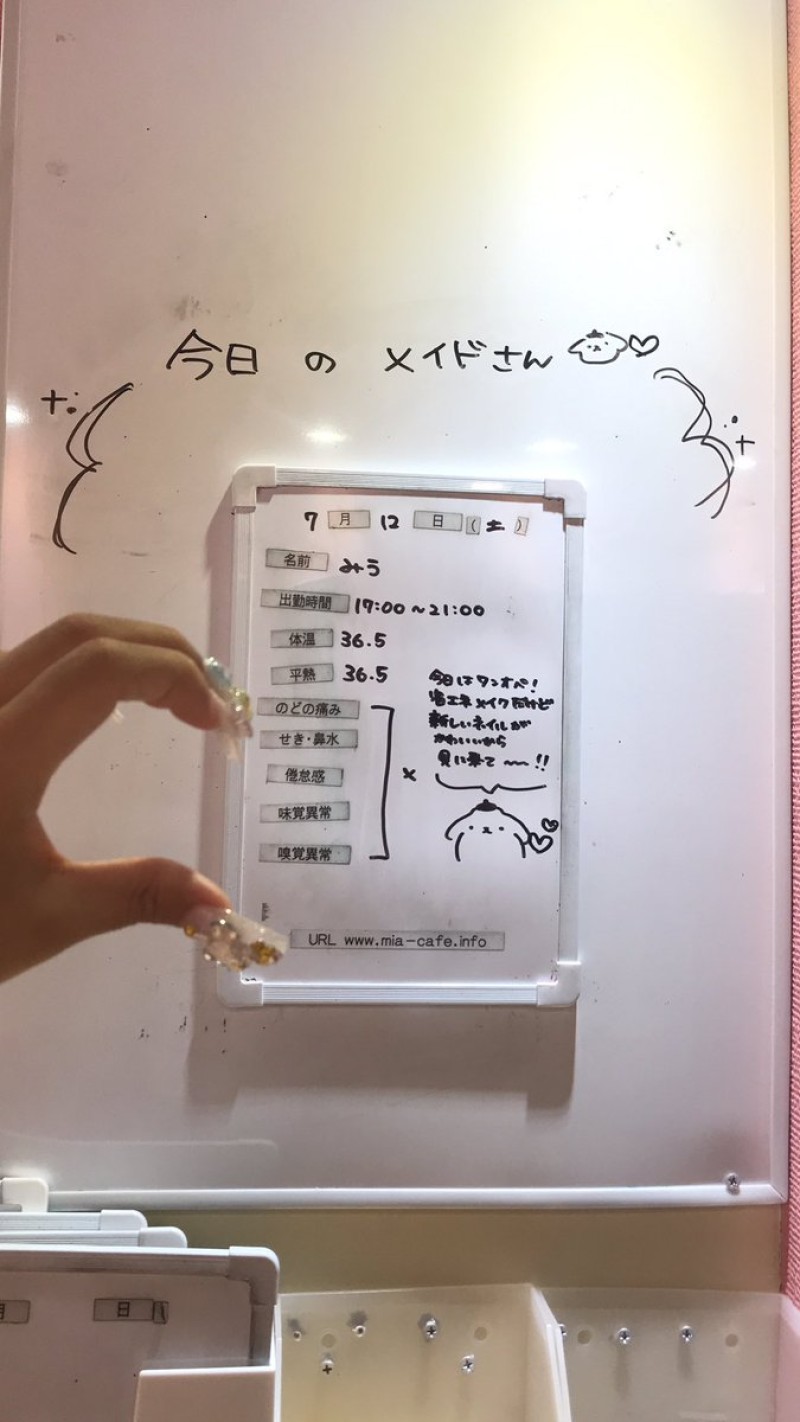 今日のメイドさん
7月12日(土)
名前 みう
出勤時間 17:00～21:00
体温 36.5
平熱 36.5
のどの痛み
せき・鼻水
倦怠感
味覚異常
嗅覚異常
×
今日はワンオペ!
省エネメイクだけど
新しいネイルが
かわいいから
見に来て〜!!
URL www.mia-cafe.info
月 日(